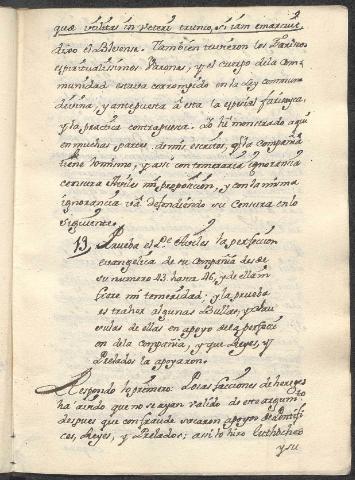 quæ utilitas in veteri trunco, si iam emarcuit
dixo el Blesense. Tambien tuvieron los Fariseos
espiritualissimos Varones, y el cuerpo de la Com-
munidad estava corrompido en la Ley commun
divina, y antepuesta a esta la especial farisayca,
y la practica contrapuesta. Yo hè monstrado aqui
en muchas partes, de mis escritos, q̃ la compañia
tiene lo mismo, y assi con temeraria ignorancia
censura Aviles mi proposicion, y con la misma
ignorancia và defendiendo su censura en lo
siguiente.
13, Prueba el P.e Aviles la perfeccion
evangelica de su compañia desde
su numero 43 hasta 46, y de ella in-
fiere mi temeridad; y la prueba
es traher algunas Bullas, y clau-
sulas de ellas en apoyo de la perfec-
on de la compañia, y que Reyes, y
Prelados la apoyaron.
Respondo lo primero: Pocas facciones de hereges
ha avido que no se ayan valido de este argum.to
despues que con fraude sacaron apoyos de Pontifi-
ces, Reyes, y Prelados; assi lo hizo
y su